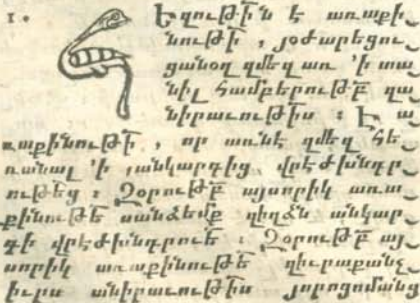 1. Հեզութի՟ն է առաքի֊
նութի՟, յօժարեցու֊
ցանօղ զմեզ առ ՚ի տա֊
նիլ համբերութե՟ զա֊
նիրաւութիս : Է ա֊
ռաքինութի՟, որ առնէ զմեզ հե֊
ռանալ ՚ի յանկարգից վրէժխնդր֊
ութեց : Զօրութե՟ այսորիկ առա֊
քինութե՟ սանձեմք զիղձն անկար֊
գի վրէժխնդրուե՟ : Զօրութե՟ այ֊
սորիկ առաքինութե՟ զիւրաքանչ֊
իւրս անիրաւութիս յորոգոմանց